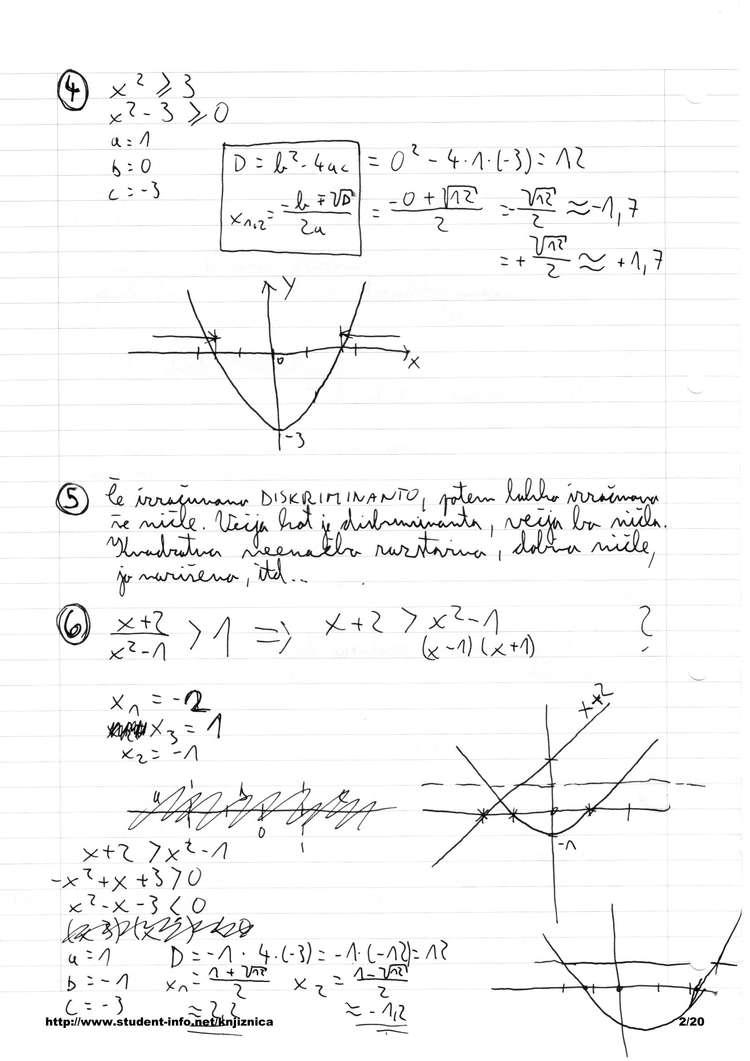 4 x² ≥ 3
x² - 3 ≥ 0
a = 1
b = 0
c = -3
D = b² - 4ac = 0² - 4·1·(-3) = 12
x₁,₂ = (-b ∓ √D)/2a = (-0 + √12)/2 = -√12/2 ≈ -1,7
= + √12/2 ≈ +1,7
y
0
x
-3
5 Če izračunamo DISKRIMINANTO, potem lahko izračunamo
še ničle. Večja kot je diskriminanta, večja bo ničla.
Kvadratna neenačba razstavimo, dobimo ničle,
jo narišemo, itd...
6 (x+2)/(x²-1) > 1 => x+2 > x²-1 ?
(x-1)(x+1)
x₁ = -2
x₃ = 1
x₂ = -1
0
1
-1
x+2 > x²-1
-x²+x+3 > 0
x²-x-3 < 0
a = 1 D = -1 · 4·(-3) = -1·(-12) = 12
b = -1 x₁ = (1+√12)/2 x₂ = (1-√12)/2
c = -3 ≈ 2,2 ≈ -1,2
http://www.student-info.net/knjiznica 2/20